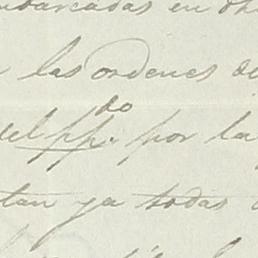 embarcadas en dh
las ordenes de
del pp.do por la
tan ya todas